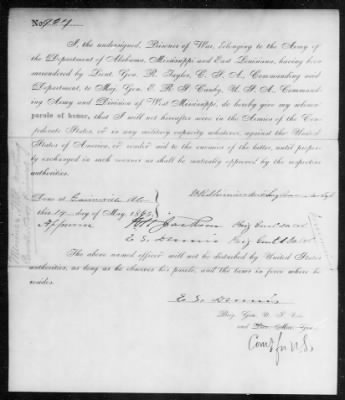 No 924
I, the undersigned, Prisoner of War, belonging to the Army of
the Department of Alabama, Mississippi and East Louisiana, having been
surrendered by Lieut. Gen. R. Taylor, C. S. A., Commanding said
Department, to Maj. Gen. E. R. S. Canby, U. S. A., Command-
ing Army and Division of West Mississippi, do hereby give my solemn
parole of honor, that I will not hereafter serve in the Armies of the Con-
federate States, or in any military capacity whatever, against the United
States of America, or render aid to the enemies of the latter, until proper-
ly exchanged in such manner as shall be mutually approved by the respective
authorities.
Done at Gainesville Ala
this 14 day of May 1865
Approved W H Jackson Brig Genl
E. S. Dennis Brig Genl
The above named officer will not be disturbed by United States
authorities, as long as he observes his parole, and the laws in force where he
resides.
E. S. Dennis
Brig. Gen. U. S. Vols
and
Com for U.S.